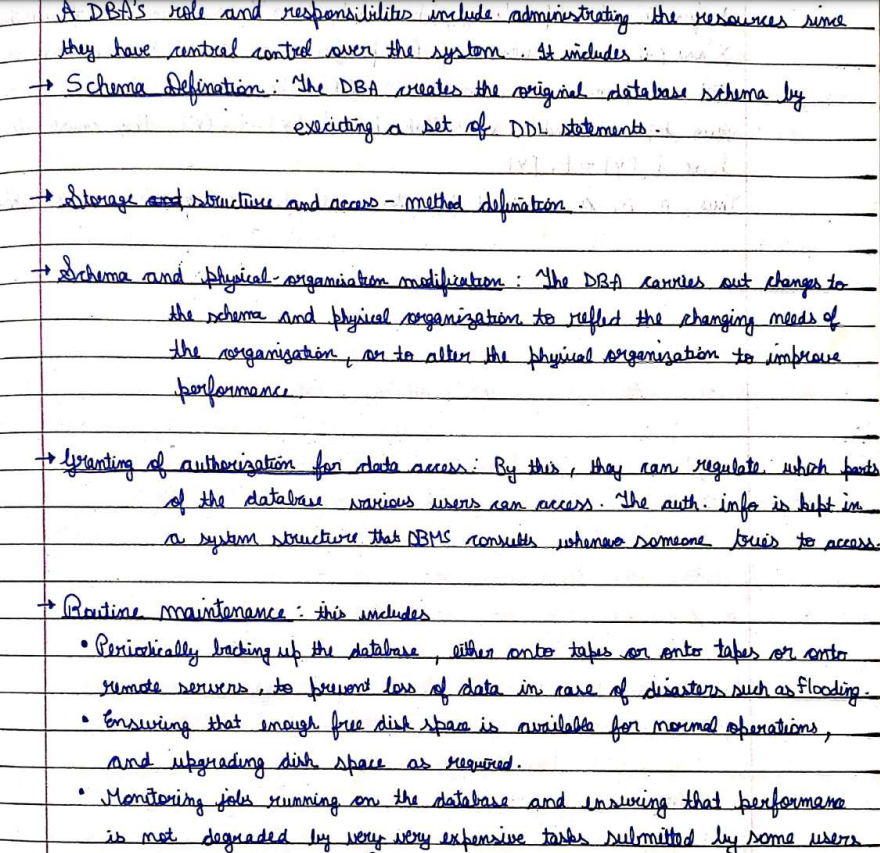 A DBA's role and responsibilitites include administrating the resources since
they have central control over the system. It includes:
→ Schema Defination: The DBA creates the original database schema by
executing a set of DDL statements.
→ Storage and structure and access-method defination.
→ Schema and physical-organisation modification: The DBA carries out changes to
the schema and physical organization to reflect the changing needs of
the organisation, or to alter the physical organization to improve
performance.
→ Granting of authorization for data access: By this, they can regulate which parts
of the database various users can access. The auth. info is kept in
a system structure that DBMS consults whenever someone tries to access.
→ Routine maintenance: this includes
• Periodically backing up the database, either onto tapes or onto tapes or onto
remote servers, to prevent loss of data in case of disasters such as flooding.
• Ensuring that enough free disk space is available for normal operations,
and upgrading disk space as required.
• Monitoring jobs running on the database and ensuring that performance
is not degraded by very very expensive tasks submitted by some users